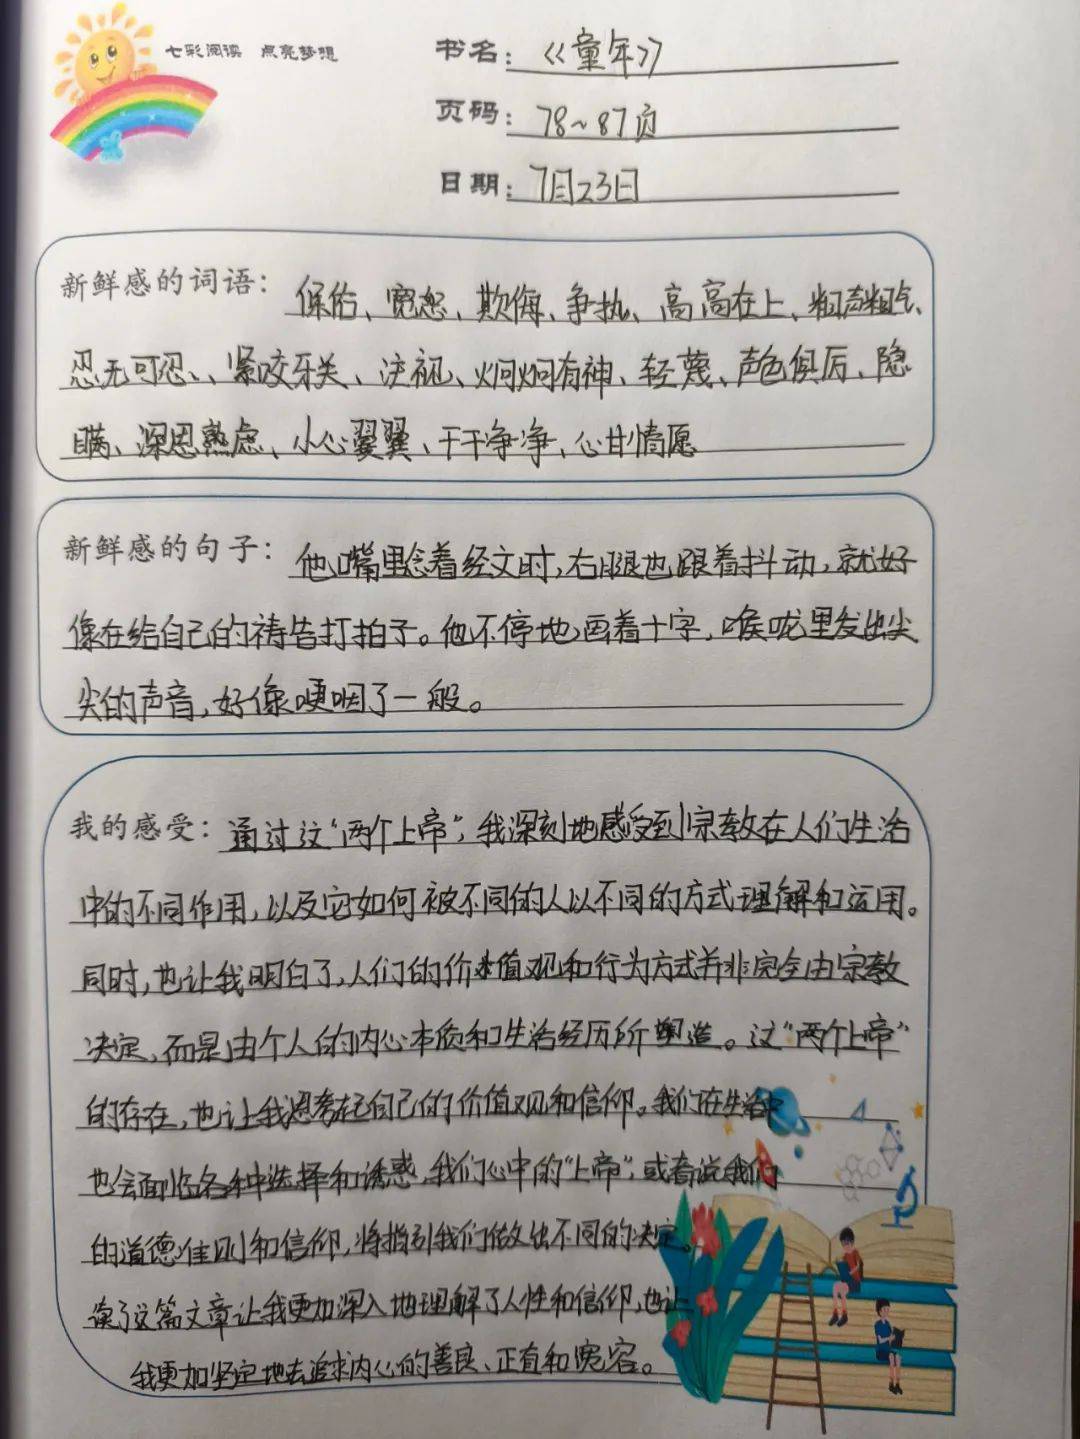 七彩阅读 点亮梦想
书名：《童年》
页码：78~87页
日期：7月23日
新鲜感的词语：保佑、宽恕、欺侮、争执、高高在上、粗声粗气、
忍无可忍、紧咬牙关、注视、炯炯有神、轻蔑、声色俱厉、隐
瞒、深思熟虑、小心翼翼、干干净净、心甘情愿
新鲜感的句子：他嘴里念着经文时，右腿也跟着抖动，就好
像在给自己的祷告打拍子。他不停地画着十字，喉咙里发出尖
尖的声音，好像哽咽了一般。
我的感受：通过这“两个上帝”，我深刻地感受到宗教在人们生活
中的不同作用，以及它如何被不同的人以不同的方式理解和运用。
同时，也让我明白了，人们的价值观和行为方式并非完全由宗教
决定，而是由个人的内心本质和生活经历所塑造。这“两个上帝”
的存在，也让我思考起自己的价值观和信仰。我们在生活中
也会面临各种选择和诱惑，我们心中的“上帝”，或者说我们
的道德准则和信仰，将指引我们做出不同的决定。
读了这篇文章让我更加深入地理解了人性和信仰，也让
我更加坚定地去追求内心的善良、正直和宽容。